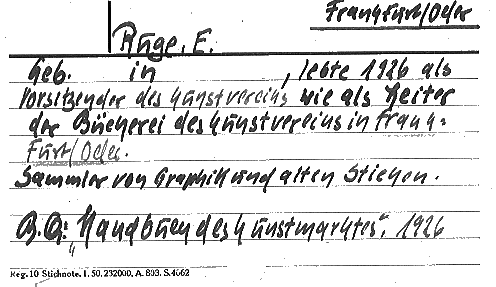 Frankfurt/Oder
Ruge, E.
Geb. in , lebte 1926 als
Vorsitzender des Kunstvereins wie als Leiter
der Bücherei des Kunstvereins in Frank-
furt/Oder.
Sammler von Graphik und alten Stichen.
B.Q: "Handbuch des Kunstmarktes", 1926
Reg. 10 Stichnote. I. 50. 232000. A. 803. S. 4662